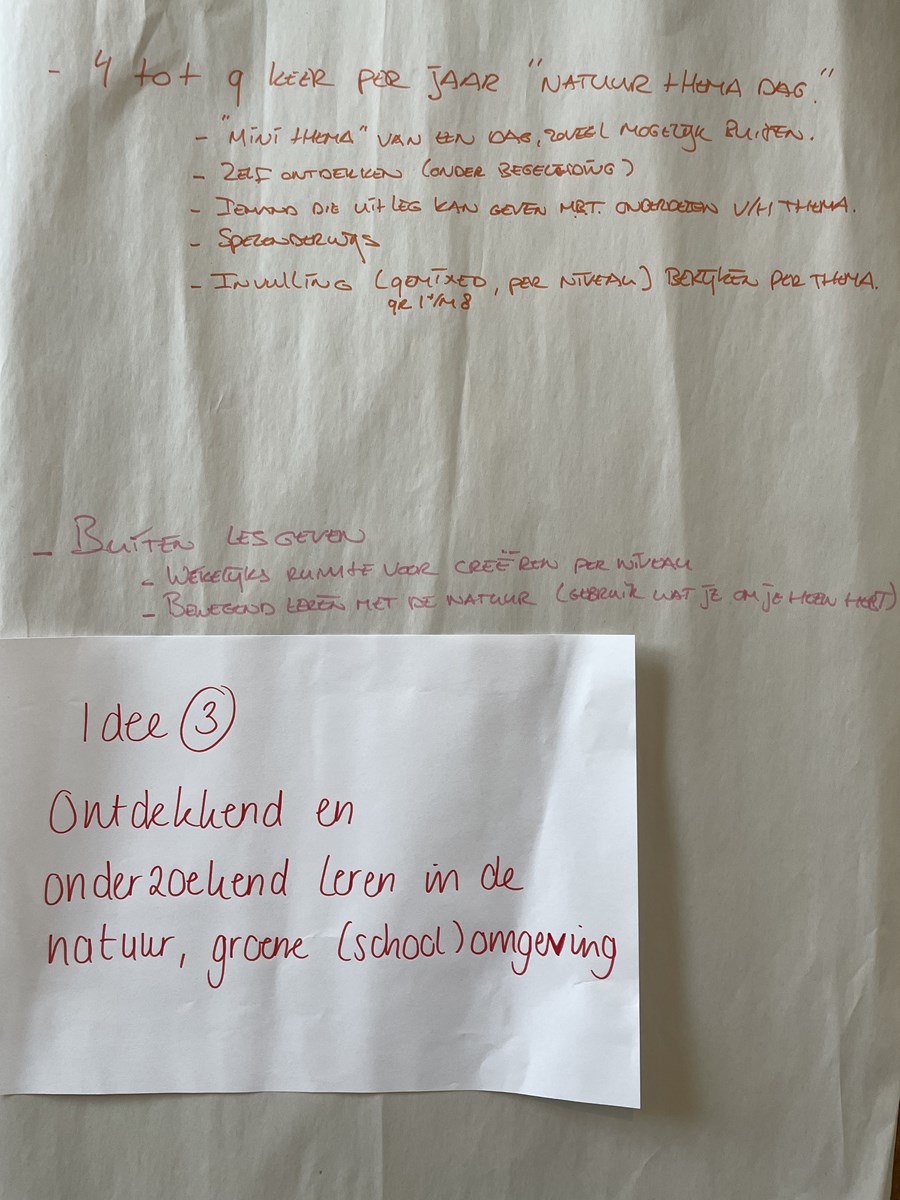 - 4 tot 9 KEER PER JAAR "NATUUR tHEMA DAG."
- "MINI tHEMA" VAN EEN DAG, ZOVEEL MOGELIJK BUITEN.
- ZELF ONTDEKKEN (ONDER BEGELEIDING)
- IEMAND DIE UITLEG KAN GEVEN M.B.T. ONDERDELEN V/H THEMA.
- SPELENDERWIJS
- INVULLING (GEMIXED, PER NIVEAU) BEKIJKEN PER THEMA.
gR 1 t/m 8
- BUITEN LES GEVEN
- WEKELIJKS RUIMTE VOOR CREËREN PER NIVEAU
- BEWEGEND LEREN MET DE NATUUR (GEBRUIK WAT JE OM JE HEEN HEBT)
Idee 3
Ontdekkend en
onderzoekend leren in de
natuur, groene (school)omgeving